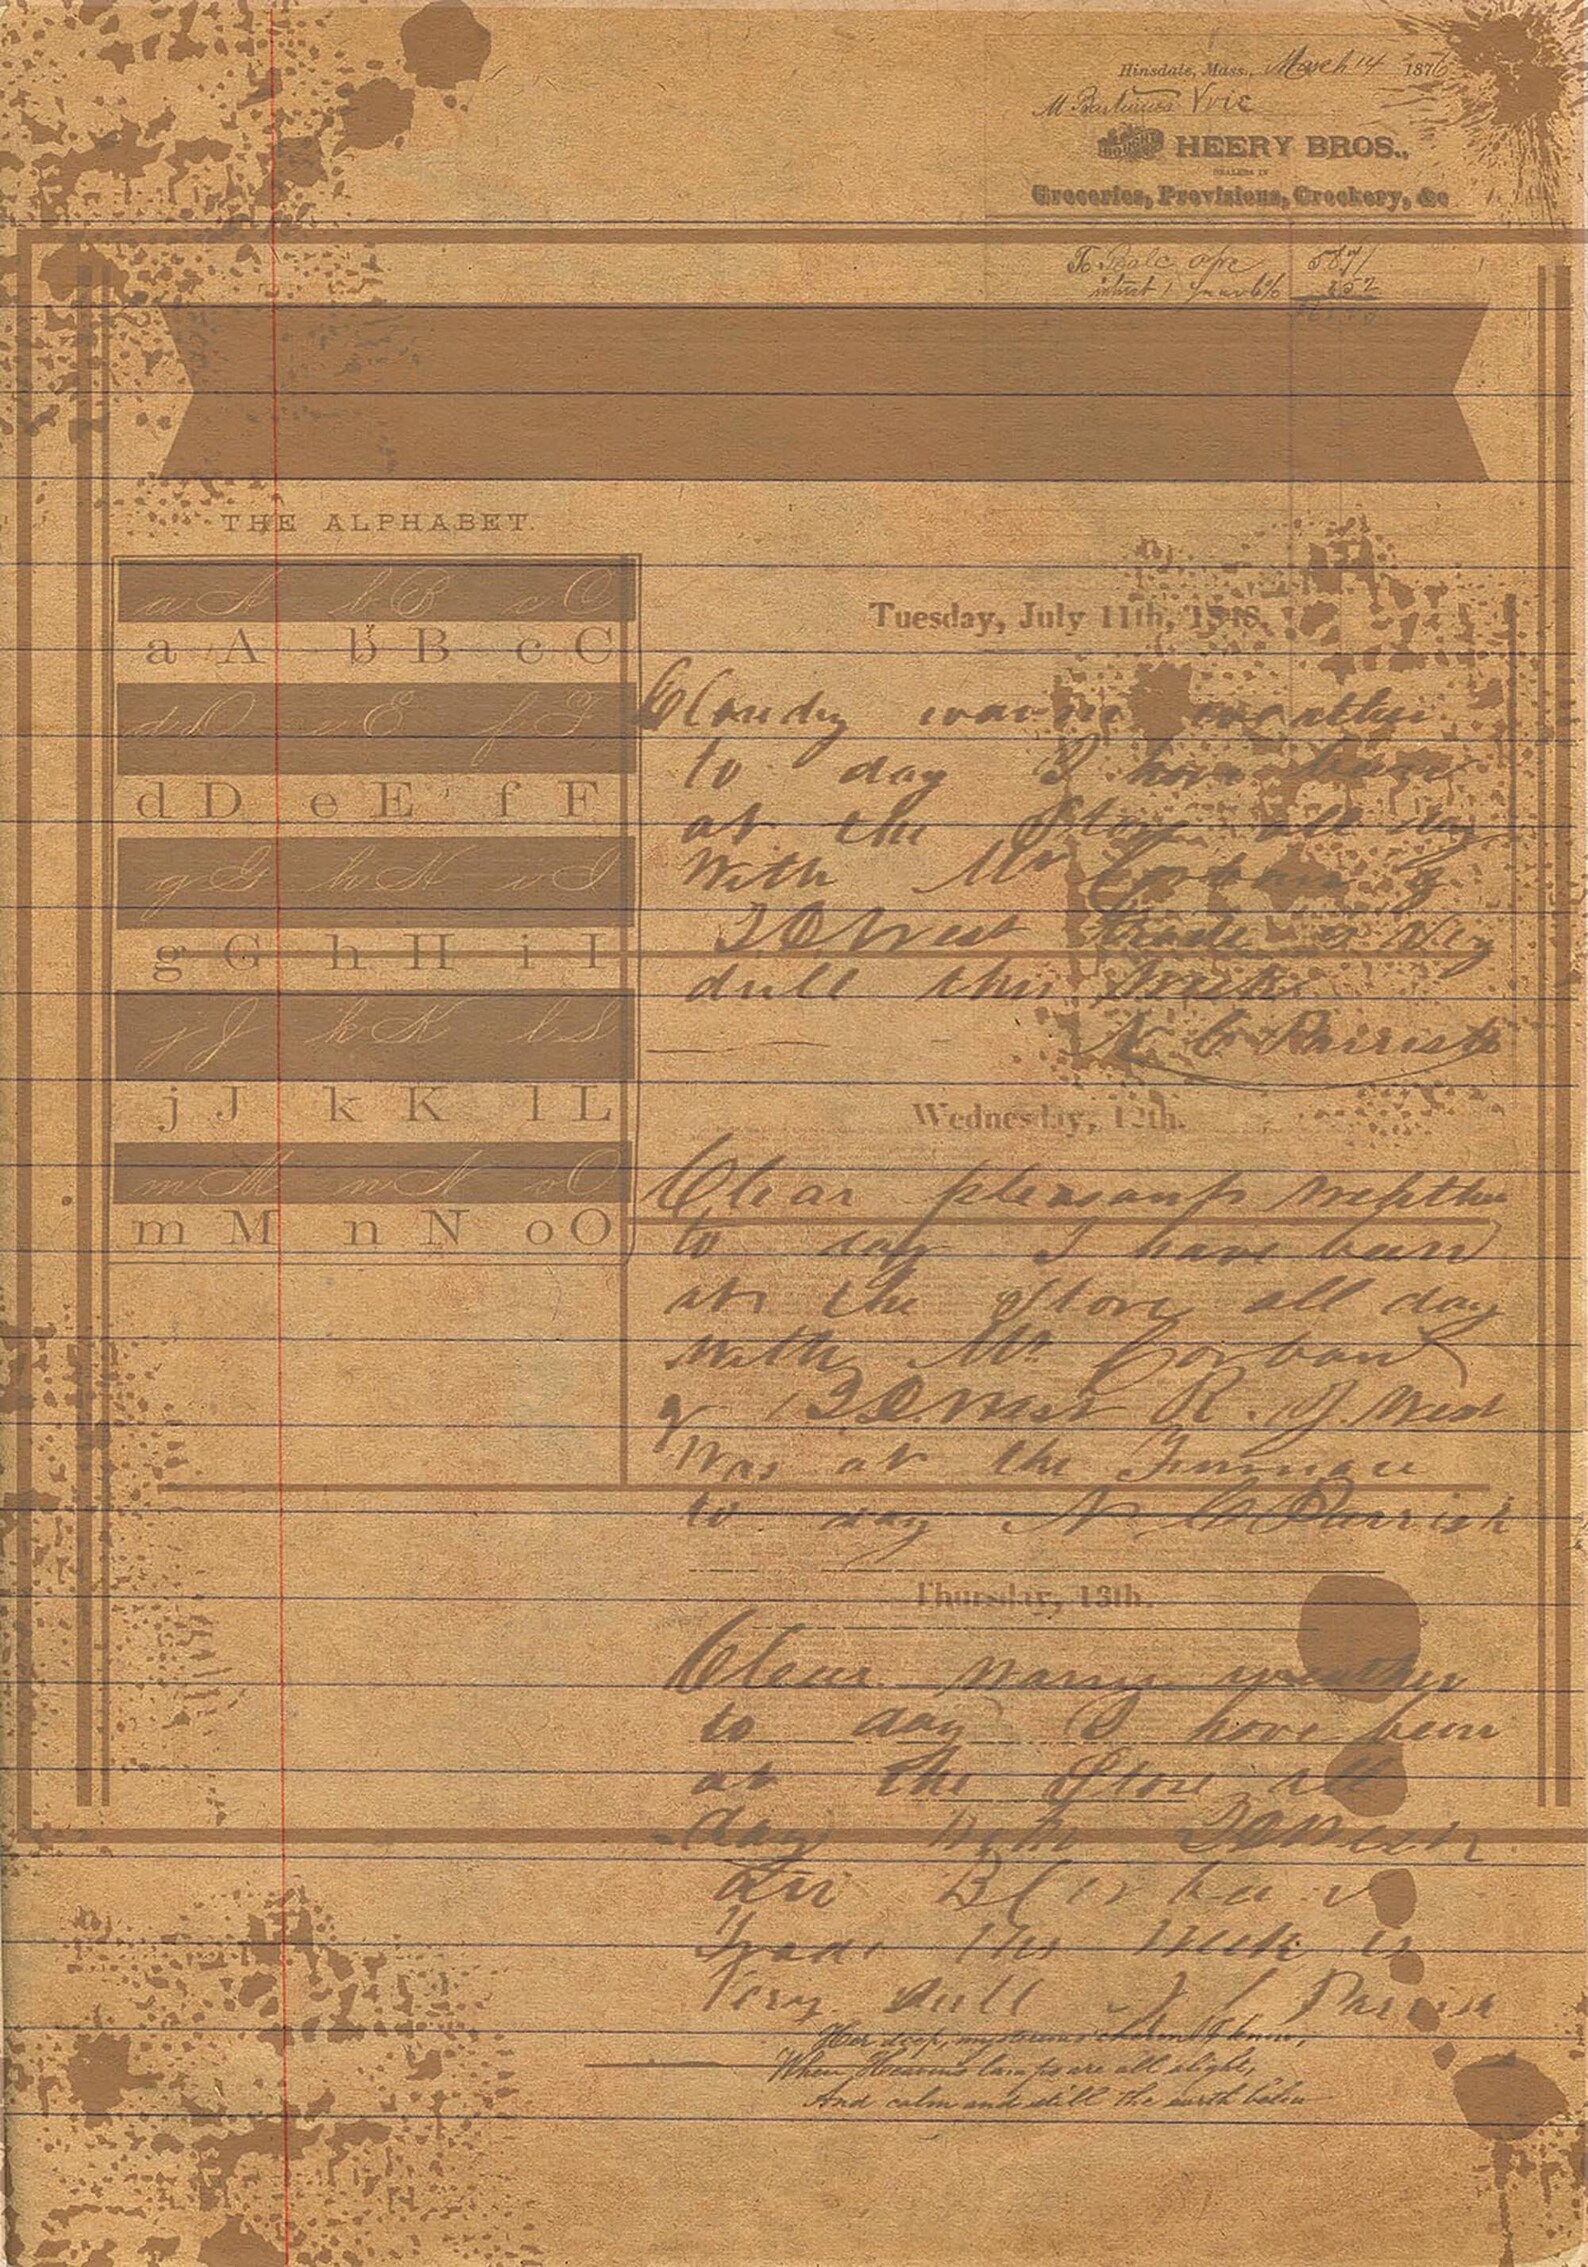 Hinsdale, Mass., March 14 1876
M
HEERY BROS.,
DEALERS IN
Groceries, Provisions, Crockery, &c
To
interest 1 year 6%
THE ALPHABET.
a A b B c C
a A b B c C
d D e E f F
d D e E f F
g G h H i I
g G h H i I
j J k K l L
j J k K l L
m M n N o O
m M n N o O
Tuesday, July 11th, 1848.
Cloudy warm weather
to day I have been
at the Store all day
With Mr Corban &
West trade is very
dull this week
N C Parrish
Wednesday, 12th.
Clear pleasant weather
to day I have been
at the Store all day
with Mr Corban
& West R. J. West
Was at the Furnace
to day N C Parrish
Thursday, 13th.
Clear warm weather
to day I have been
at the Store all
day with
Trade this week is
very dull N C Parrish
Her deep, mysterious charm I know,
When Heavens lamps are all alight,
And calm and still the earth below